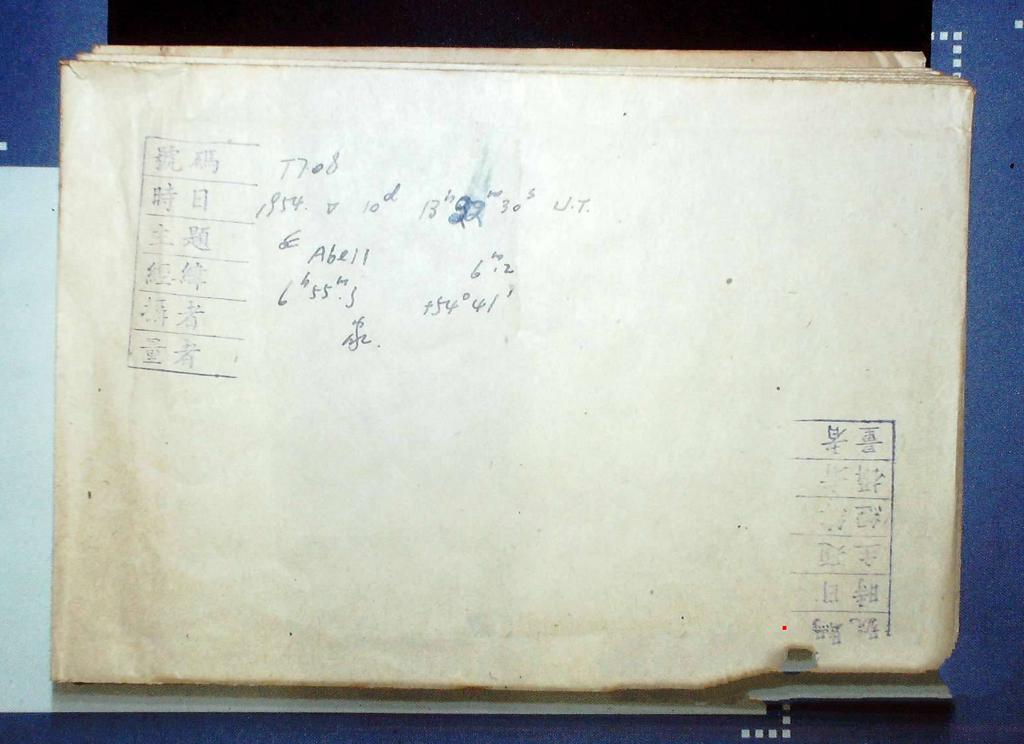 號碼 T708
時日 1954. V 10ᵈ 13ʰ 32ᵐ 30ˢ U.T.
主題 Abell 6ᵐ.2
經緯 6ʰ55ᵐ.5 +54°41'
攝者
量者
號碼
時日
主題
經緯
攝者
量者